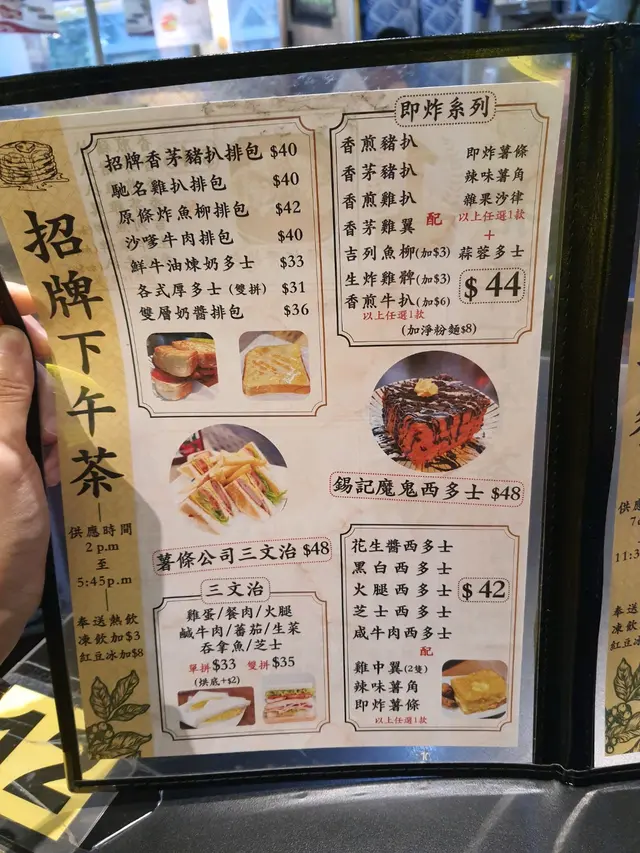 招牌下午茶
供應時間
2 p.m
至
5:45p.m
奉送熱飲
凍飲加$3
紅豆冰加$8
招牌香茅豬扒排包 $40
馳名雞扒排包 $40
原條炸魚柳排包 $42
沙嗲牛肉排包 $40
鮮牛油煉奶多士 $33
各式厚多士(雙拼) $31
雙層奶醬排包 $36
即炸系列
香煎豬扒
香茅豬扒
香煎雞扒
香茅雞翼
吉列魚柳(加$3)
生炸雞髀(加$3)
香煎牛扒(加$6)
以上任選1款
配
即炸薯條
辣味薯角
雜果沙律
以上任選1款
+
蒜蓉多士
$44
(加淨粉麵$8)
錫記魔鬼西多士 $48
薯條公司三文治 $48
三文治
雞蛋/餐肉/火腿
鹹牛肉/番茄/生菜
吞拿魚/芝士
單拼$33 雙拼$35
(烘底+$2)
花生醬西多士
黑白西多士
火腿西多士
芝士西多士
咸牛肉西多士
$42
配
雞中翼(2隻)
辣味薯角
即炸薯條
以上任選1款